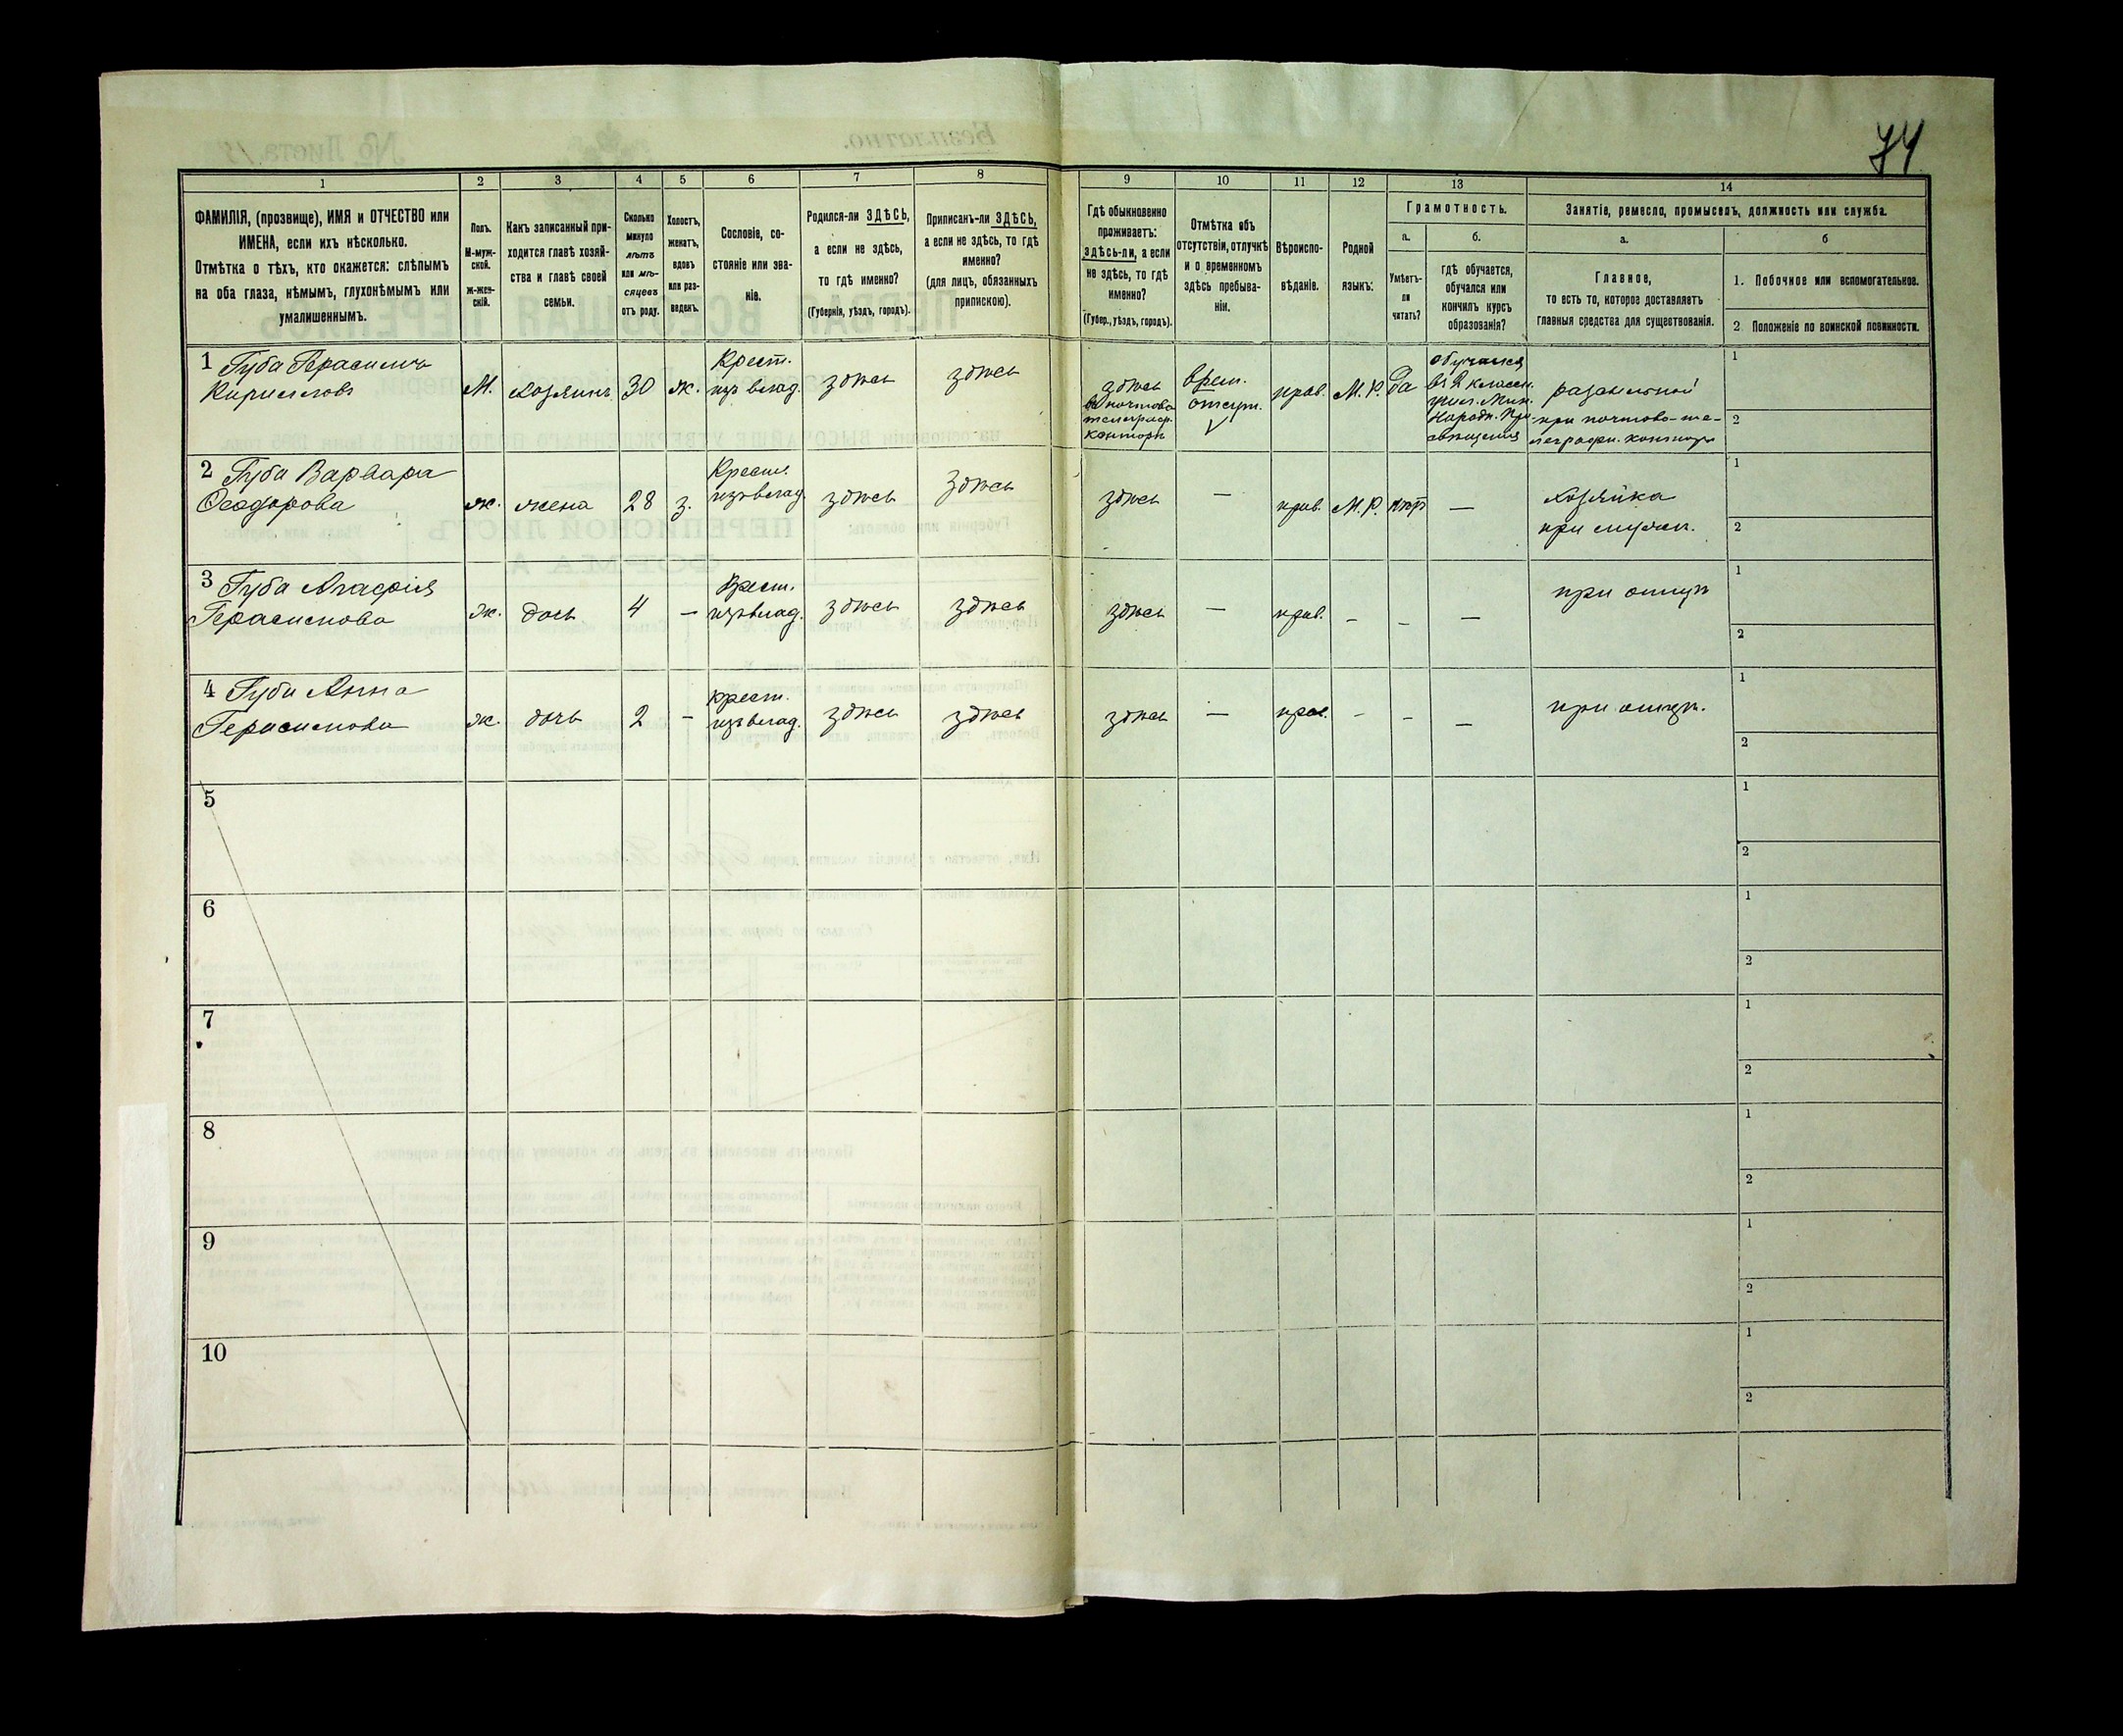 74
1 2 3 4 5 6 7 8 9 10 11 12 13 14
ФАМИЛІЯ, (прозвище), ИМЯ и ОТЧЕСТВО или
ИМЕНА, если ихъ нѣсколько.
Отмѣтка о тѣхъ, кто окажется: слѣпымъ
на оба глаза, нѣмымъ, глухонѣмымъ или
умалишеннымъ.
Полъ.
М-муж-
ской.
ж-жен-
скій.
Какъ записанный при-
ходится главѣ хозяй-
ства и главѣ своей
семьи.
Сколько
минуло
лѣтъ
или мѣ-
сяцевъ
отъ роду.
Холостъ,
женатъ,
вдовъ
или раз-
веденъ.
Сословіе, со-
стояніе или зва-
ніе.
Родился-ли ЗДѢСЬ,
а если не здѣсь,
то гдѣ именно?
(Губернія, уѣздъ, городъ).
Приписанъ-ли ЗДѢСЬ,
а если не здѣсь, то гдѣ
именно?
(для лицъ, обязанныхъ
припискою).
Гдѣ обыкновенно
проживаетъ:
здѣсь-ли, а если
не здѣсь, то гдѣ
именно?
(Губер., уѣздъ, городъ).
Отмѣтка объ
отсутствіи, отлучкѣ
и о временномъ
здѣсь пребыва-
ніи.
Вѣроиспо-
вѣданіе.
Родной
языкъ.
Грамотность.
а.
Умѣетъ-
ли
читать?
б.
гдѣ обучается,
обучался или
кончилъ курсъ
образованія?
Занятіе, ремесло, промыселъ, должность или служба.
а.
Главное,
то есть то, которое доставляетъ
главныя средства для существованія.
б
1. Побочное или вспомогательное.
2. Положеніе по воинской повинности.
1 Губа Герасимъ
Кирилловъ
М.
хозяинъ
30
ж.
Крест.
изъ влад.
здѣсь
здѣсь
здѣсь
въ почтово
телеграф.
конторѣ
врем.
отсут.
прав.
М. Р.
да
обучался
въ 2 класс.
учил. Мин.
Народн. Про-
свѣщенія
при почтово-те-
леграфн. конторѣ
1
2
2 Губа Варвара
Ѳеодорова
ж.
жена
28
з.
Крест.
изъ влад.
здѣсь
здѣсь
здѣсь
—
прав.
М. Р.
нѣт
—
хозяйка
при мужѣ.
1
2
3 Губа Агафія
Герасимова
ж.
дочь
4
—
Крест.
изъ влад.
здѣсь
здѣсь
здѣсь
—
прав.
–
–
—
при отцѣ
1
2
4 Губа Анна
Герасимова
ж.
дочь
2
–
крест.
изъ влад.
здѣсь
здѣсь
здѣсь
—
прав.
–
–
—
при отцѣ.
1
2
5
1
2
6
1
2
7
1
2
8
1
2
9
1
2
10
1
2